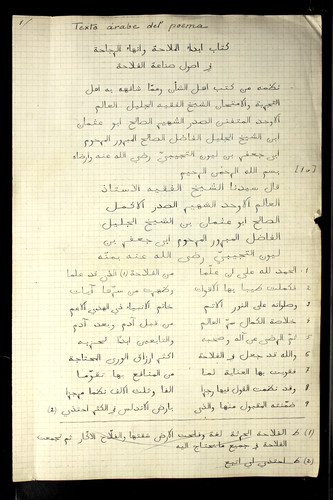 1/ Texto árabe del poema
كتاب ابداء الملاحة وانهاء الرجاحة
في اصول صناعة الفلاحة
نكلمه من كتب اهل الشأن وممّا شافهه به اهل
التجربة والامتحان الشيخ الفقيه الجليل العالم
الاوحد المتفنن الصدر الشهير الصالح ابو عثمان
ابن الشيخ الجليل الفاضل الصالح المبرور المرحوم
ابي جعفر بن ليون التجيبيّ رضي الله عنه وارضاه
بسم الله الرحمن الرحيم [1a]
قال سيدنا الشيخ الفقيه الاستاذ
العالم الاوحد الشهير الصدر الاكمل
الصالح ابو عثمان بن الشيخ الجليل
الفاضل المبرور المرحوم ابي جعفر بن
ليون التجيبيّ رضي الله عنه بمنّه
1. الحمد لله على ان علما من الفلاحة (1) الذي قد علما
2. فكملت طيبا بها الاقوات وظهرت من سرّها آيات
3. وصلواته على النور الاتم خاتم الانبياء في الهدي الاعم
4. خلاصة الكمال سرّ العالم من قبل آدم وبعد آدم
5. ثمّ الرضى عن آله وصحبه والتابعين
6. والله قد جعل في الفلاحة اكثر ارزاق الورى المحتاجة
7. فقويت بها العناية لما من المنافع بها تقوّما
8. وقد نكلمت القول فيها رجزا
9. ضمّنته المقبول منها والذي بارض الاندلس في الكثر احتذي (2)
(1) ط الفلاحة
الفلاحة في جميع ما تحتاج اليه
(2) ط احتذي اي اتبع